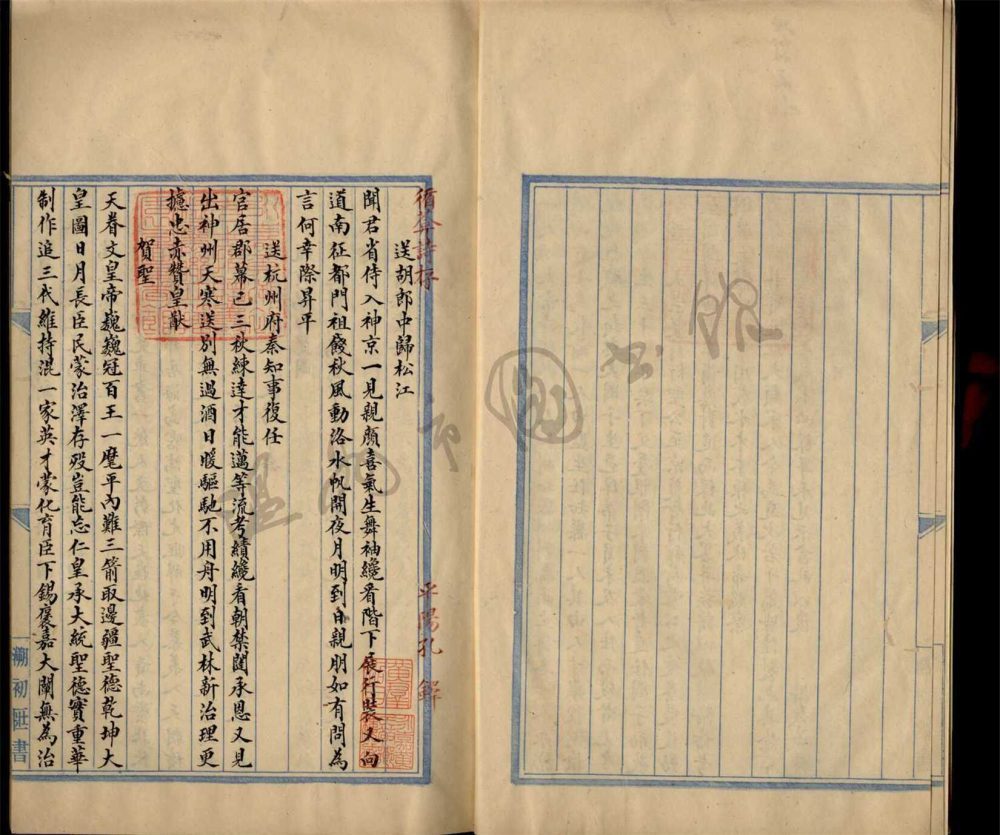 詩存 平陽孔
送胡郎中歸松江
聞君省侍入神京一見親顏喜氣生舞袖纔看階下展行裝又向
道南征都門祖餞秋風動洛水帆開夜月明到日親朋如有問為
言何幸際昇平
送杭州府秦知事復任
官居郡幕已三秋練達才能邁等流考績纔看朝禁闥承恩又見
出神州天寒送別無過酒日暖驅馳不用舟明到武林新治理更
攄忠赤贊皇猷
賀聖
天眷文皇帝巍巍冠百王一麾平內難三箭取邊疆聖德乾坤大
皇圖日月長臣民蒙治澤存歿豈能忘仁皇承大統聖德實重華
制作追三代維持混一家英才蒙化育臣下錫褒嘉大闡無為治
初匯書
温州市圖书館